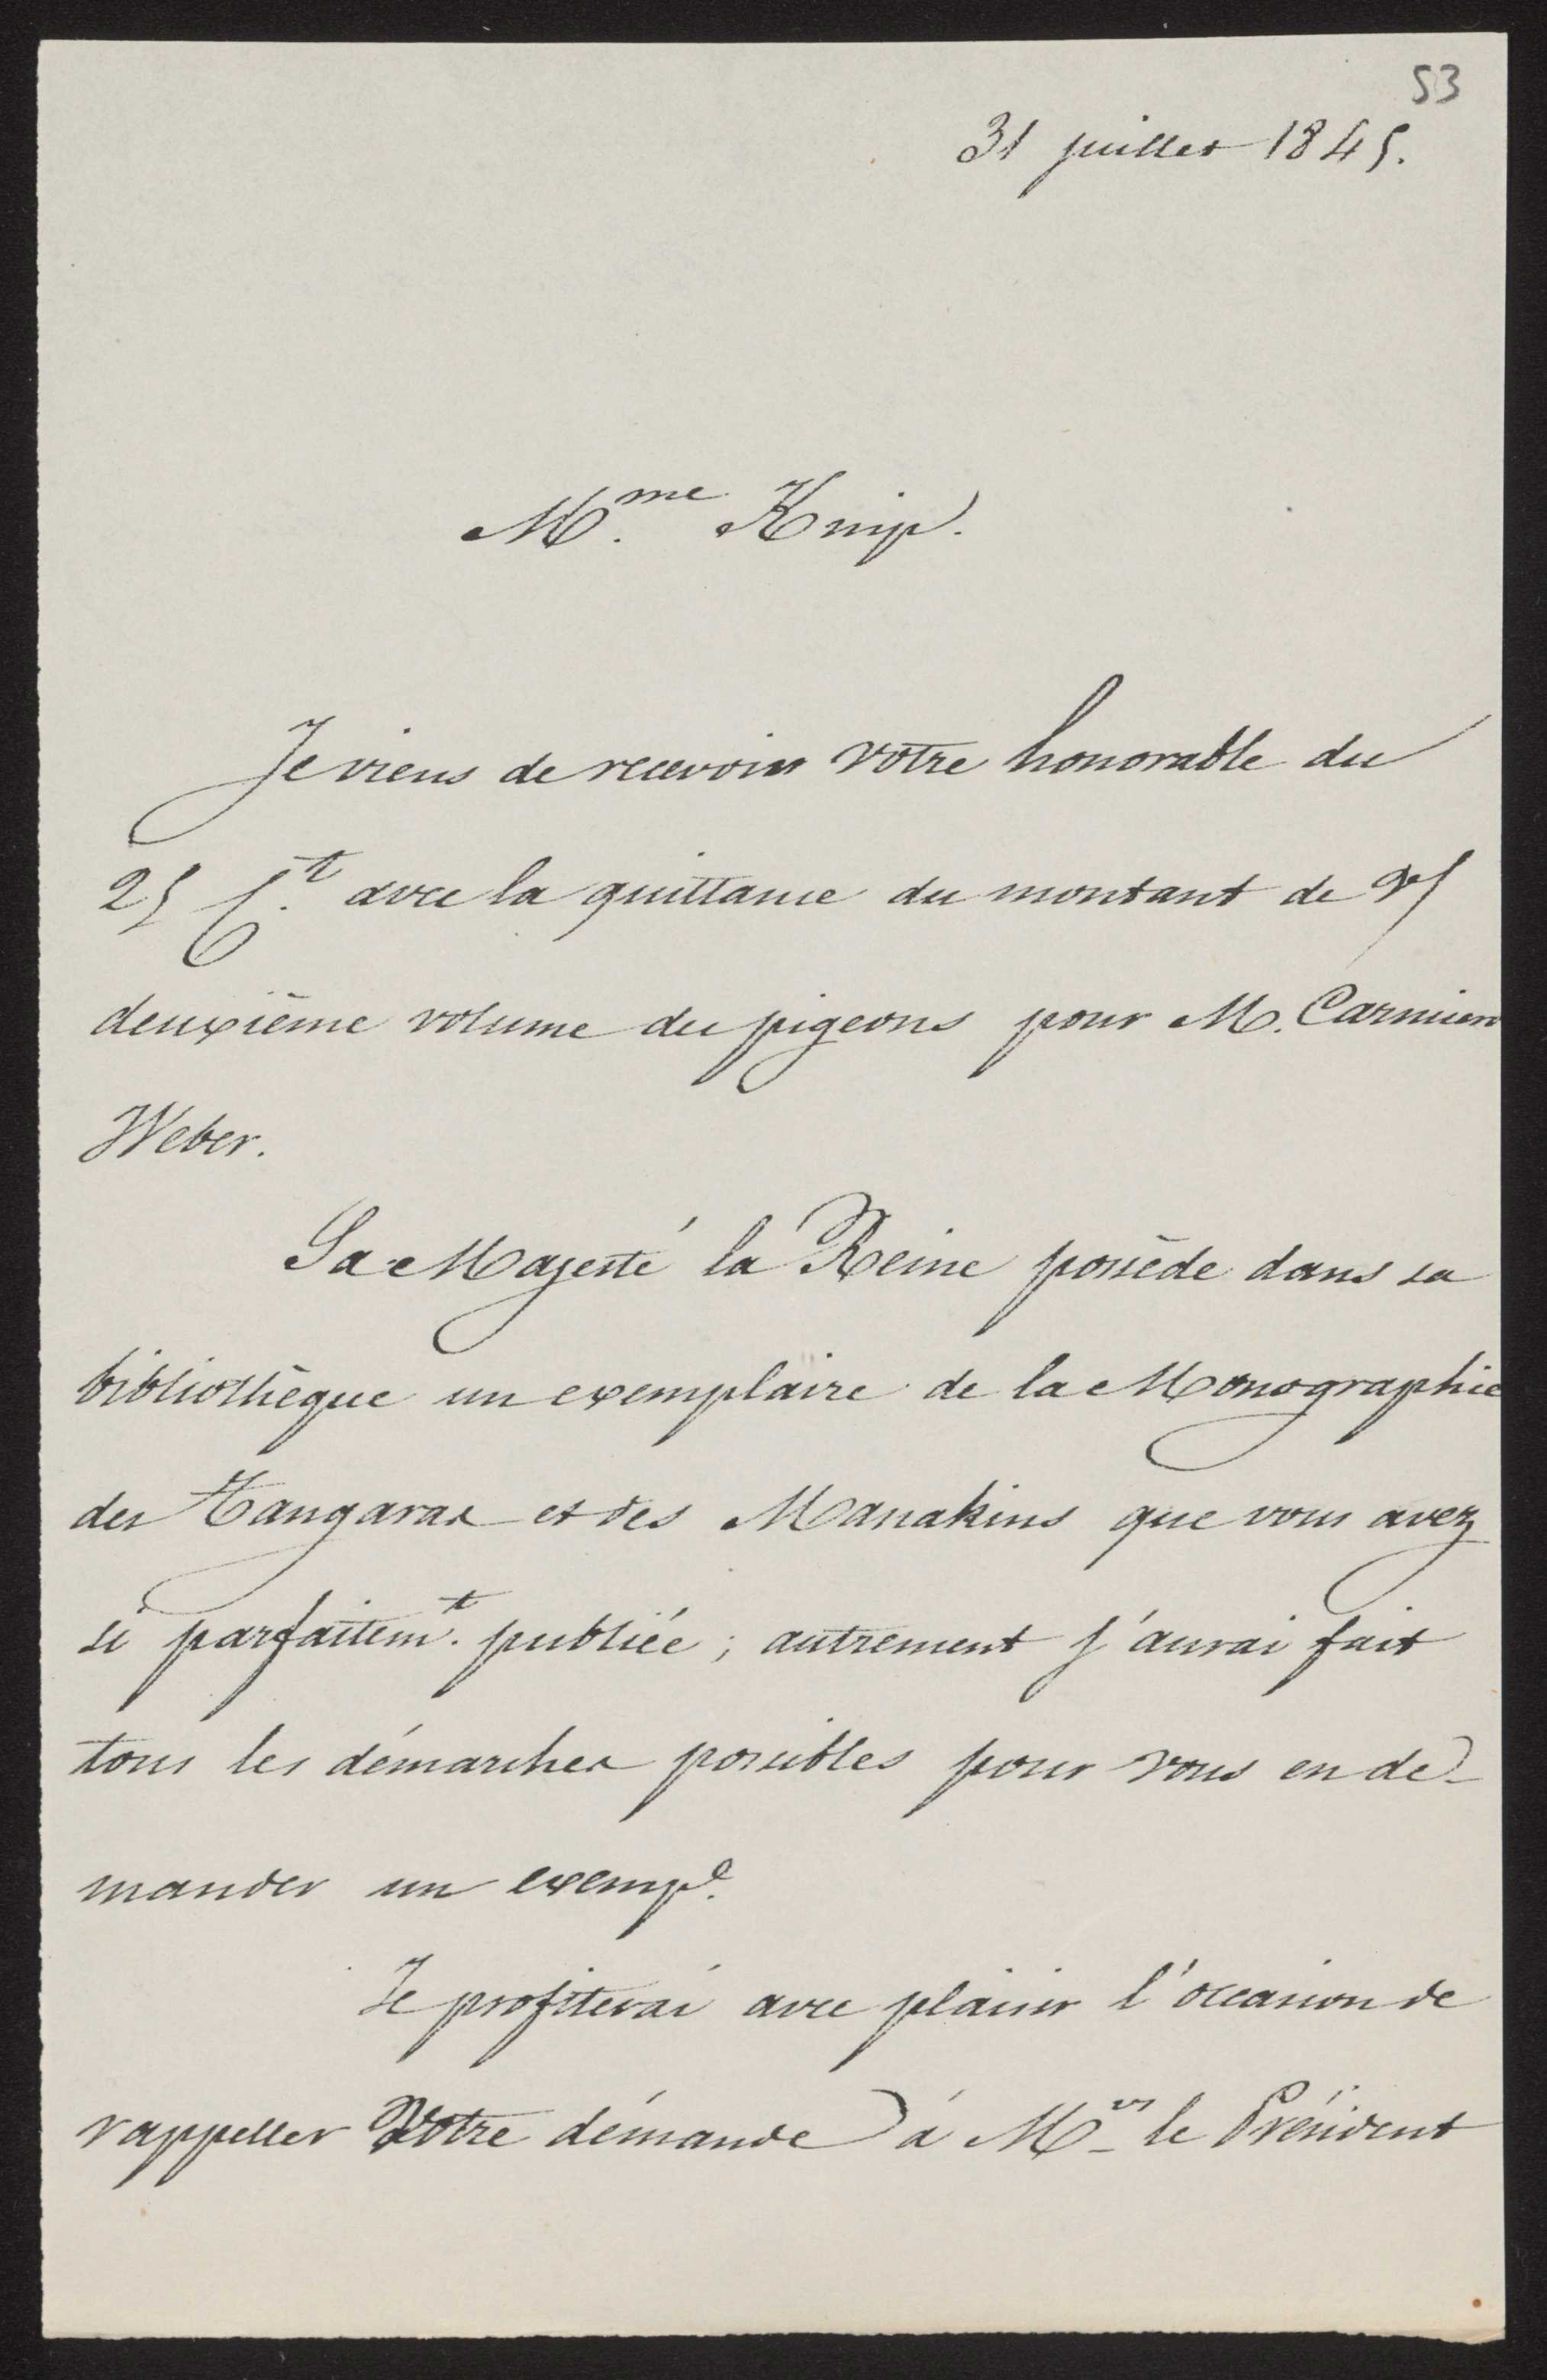 53
31 juillet 1845.
M.me Knip.
Je viens de recevoir votre honorable du
25 avec la quittance du montant de
deuxième volume des pigeons pour M. Carmien
Weber.
Sa Majesté la Reine possède dans sa
bibliothèque un exemplaire de la Monographie
des Tangaras et des Manakins que vous avez
si parfaitem.t publiée; autrement j'aurai fait
tous les démarches possibles pour vous en de-
mander un exemp.e
Je profiterai avec plaisir l'occasion de
rappeller Votre démande à Mr le Président